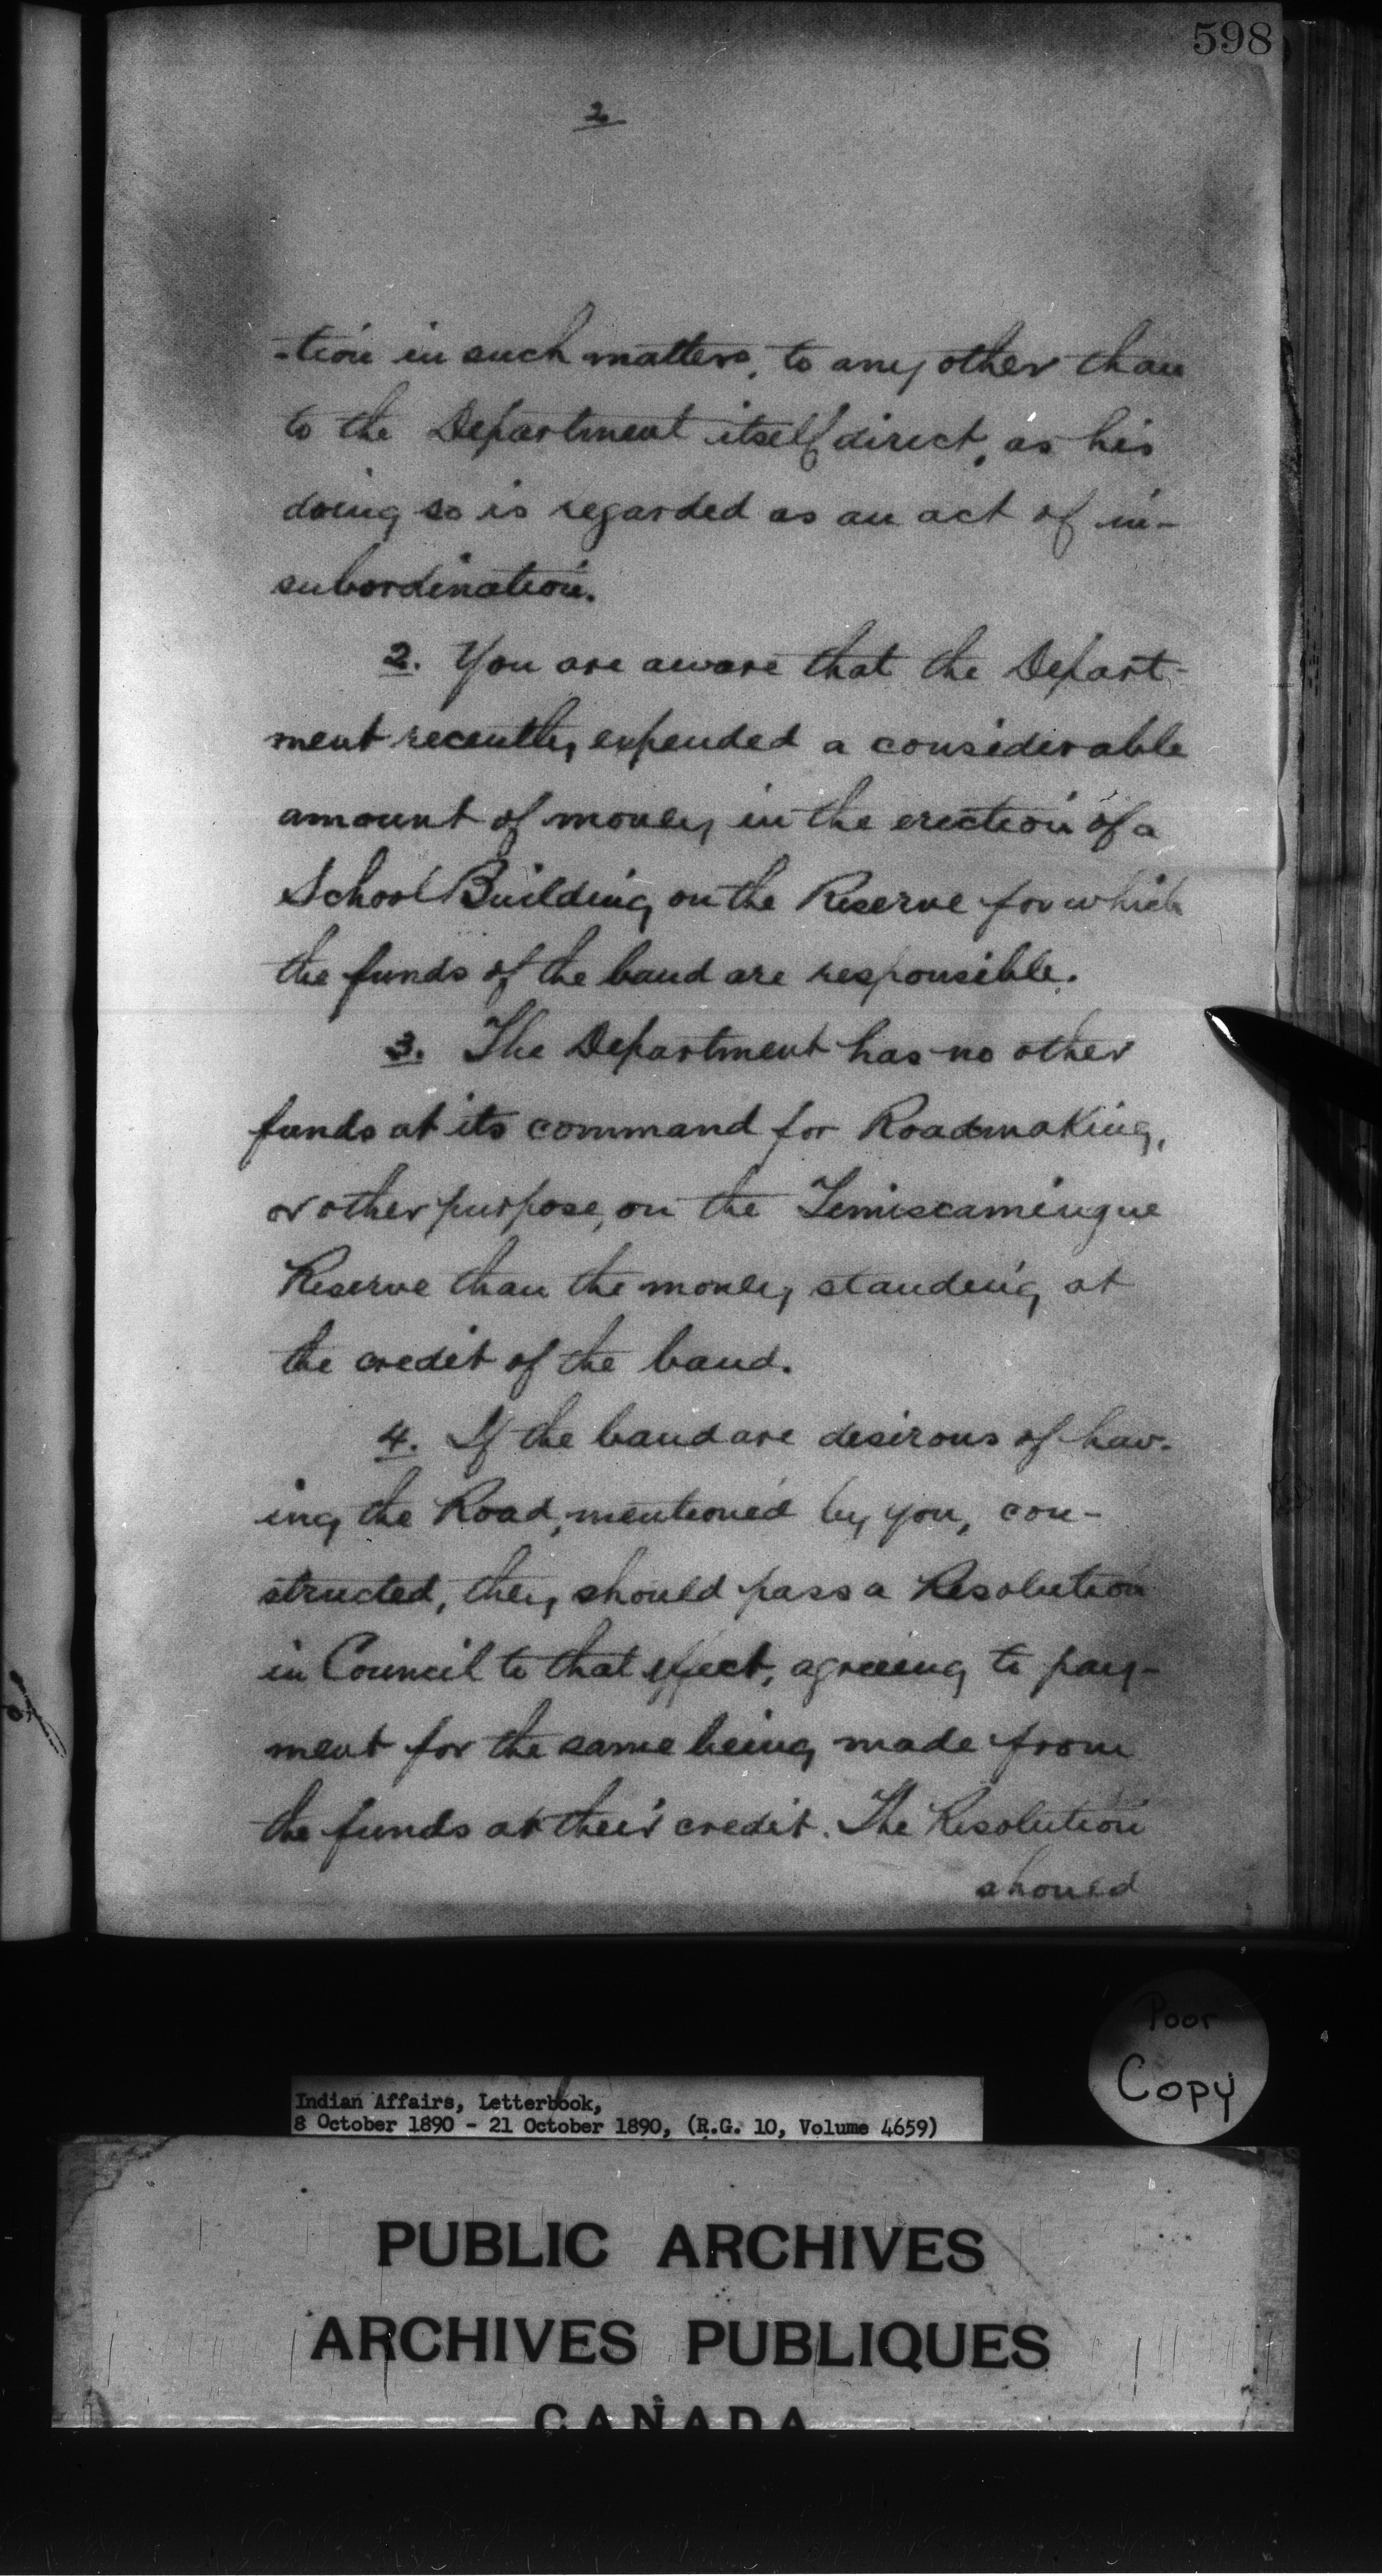 598
2
-tion in such matters, to any other than
to the Department itself direct, as his
doing so is regarded as an act of in-
subordination.
2. You are aware that the Depart-
ment recently expended a considerable
amount of money in the erection of a
School Building on the Reserve for which
the funds of the band are responsible.
3. The Department has no other
funds at its command for Roadmaking,
or other purpose, on the Temiscamingue
Reserve than the money standing at
the credit of the band.
4. If the band are desirous of hav-
ing the Road, mentioned by you, con-
structed, they should pass a Resolution
in Council to that effect, agreeing to pay-
ment for the same being made from
the funds at their credit. The Resolution
should
Poor
Copy
Indian Affairs, Letterbook,
8 October 1890 - 21 October 1890, (R.G. 10, Volume 4659)
PUBLIC ARCHIVES
ARCHIVES PUBLIQUES
CANADA